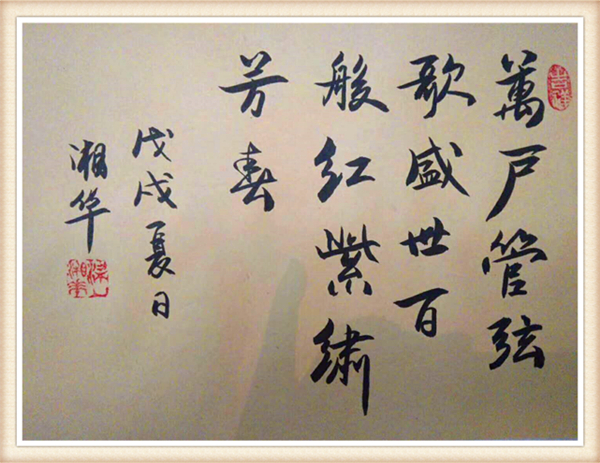 萬戶管弦
歌盛世百
般红紫绣
芳春
戊戌夏日
湘华